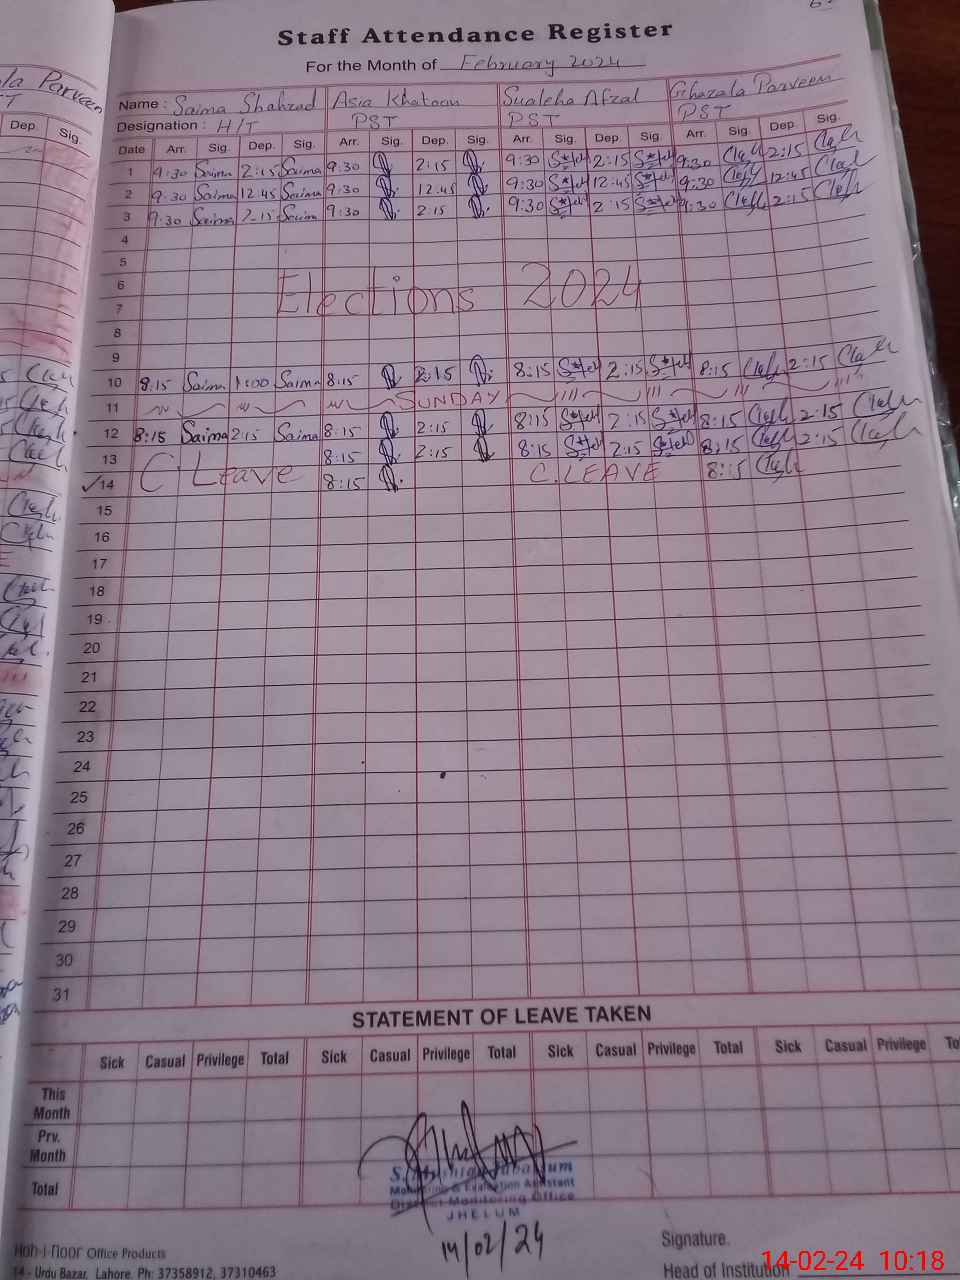 Staff Attendance Register
For the Month of February 2024
Name : Saima Shahzad Asia Khatoon Sualeha Afzal Ghazala Parveen
Designation : H/T PST PST PST
Date Arr. Sig. Dep. Sig. Arr. Sig. Dep. Sig. Arr. Sig. Dep. Sig. Arr. Sig. Dep. Sig.
1 9:30 Saima 2:15 Saima 9:30 2:15 9:30 2:15 9:30 2:15
2 9:30 Saima 12:45 Saima 9:30 12:45 9:30 12:45 9:30 12:45
3 9:30 Saima 2:15 Saima 9:30 2:15 9:30 2:15 9:30 2:15
4
5
6
Elections 2024
7
8
9
10 8:15 Saima 1:00 Saima 8:15 2:15 8:15 2:15 8:15 2:15
11 SUNDAY
12 8:15 Saima 2:15 Saima 8:15 2:15 8:15 2:15 8:15 2:15
13 8:15 2:15 8:15 2:15 8:15 2:15
14 C. Leave 8:15 C. LEAVE 8:15
15
16
17
18
19
20
21
22
23
24
25
26
27
28
29
30
31
STATEMENT OF LEAVE TAKEN
Sick Casual Privilege Total Sick Casual Privilege Total Sick Casual Privilege Total Sick Casual Privilege To
This Month
Prv. Month
Total
Monitoring & Evaluation Assistant
District Monitoring Office
JHELUM
14/02/24
Office Products
14 - Urdu Bazar, Lahore. Ph: 37358912, 37310463
Signature.
Head of Institution
14-02-24 10:18
Parveen
Dep. Sig.